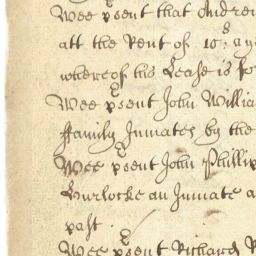 Wee pͬsent that Andre
att the Rent of 10ˢ: a y
whereof his Lease is fo
Wee pͬsent John Willia
ffamily Inmates by the
Wee pͬsent John Phillip
Burlocke an Inmate a
past
Wee pͬsent Richard